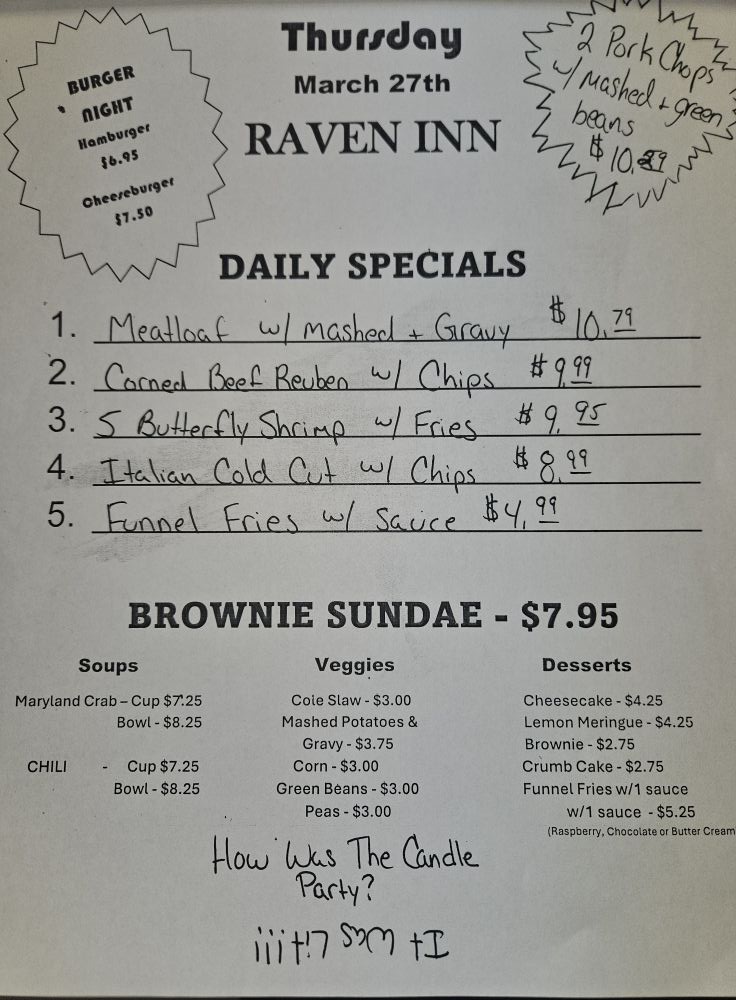 BURGER
NIGHT
Hamburger
$6.95
Cheeseburger
$7.50
Thursday
March 27th
RAVEN INN
2 Pork Chops
w/ mashed + green
beans
$10.
DAILY SPECIALS
1. Meatloaf w/ mashed + Gravy $10.79
2. Corned Beef Reuben w/ Chips $9.99
3. 5 Butterfly Shrimp w/ Fries $9.95
4. Italian Cold Cut w/ Chips $8.99
5. Funnel Fries w/ Sauce $4.99
BROWNIE SUNDAE - $7.95
Soups
Maryland Crab – Cup $7.25
Bowl - $8.25
CHILI - Cup $7.25
Bowl - $8.25
Veggies
Cole Slaw - $3.00
Mashed Potatoes &
Gravy - $3.75
Corn - $3.00
Green Beans - $3.00
Peas - $3.00
Desserts
Cheesecake - $4.25
Lemon Meringue - $4.25
Brownie - $2.75
Crumb Cake - $2.75
Funnel Fries w/1 sauce
w/1 sauce - $5.25
(Raspberry, Chocolate or Butter Cream
How Was The Candle
Party?
It Was Lit!!!!